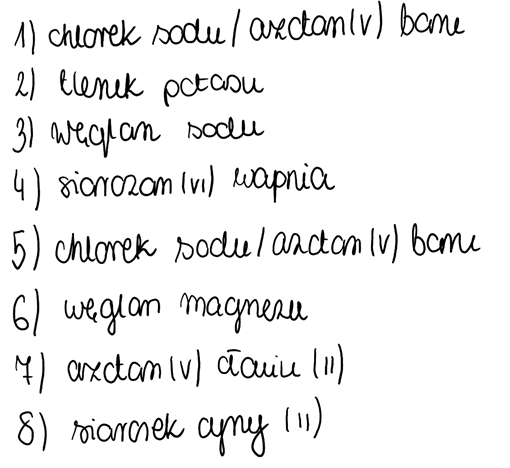 1) chlorek sodu / azotan (V) baru
2) tlenek potasu
3) węglan sodu
4) siarczan (VI) wapnia
5) chlorek sodu / azotan (V) baru
6) węglan magnezu
7) azotan (V) ołowiu (II)
8) siarczek cyny (II)